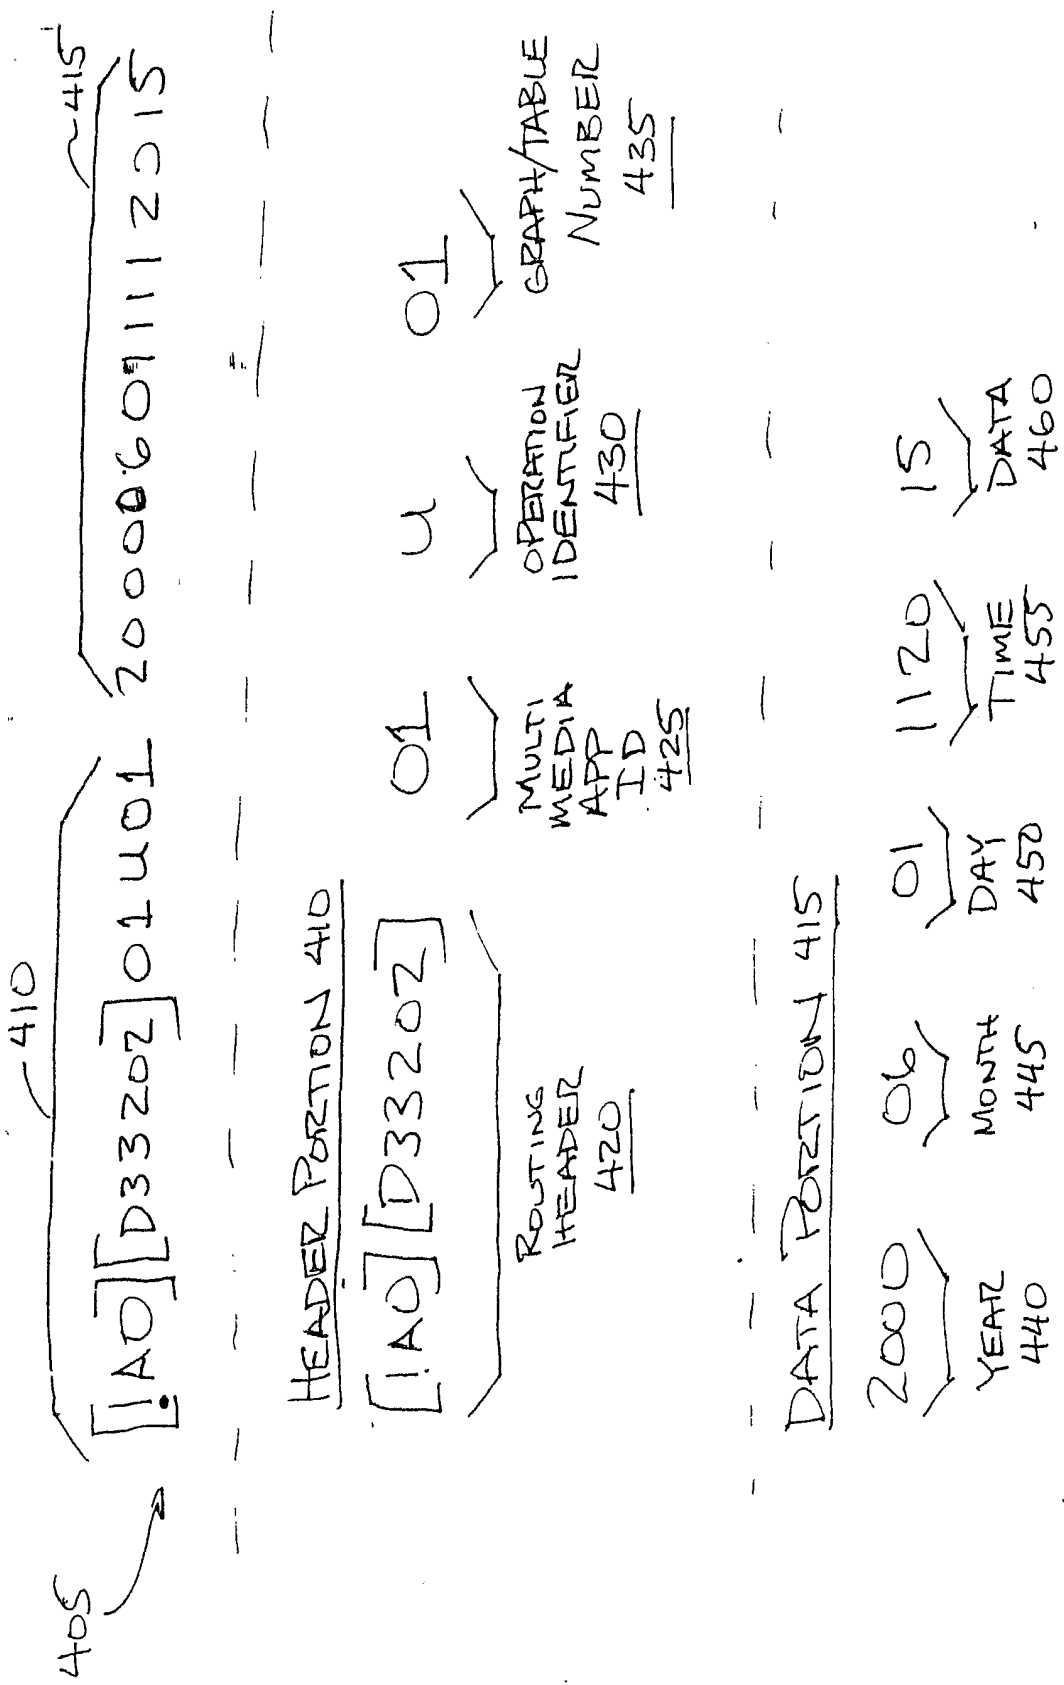 405
410
415
[!A0][D33202]01U01 20000601112015
HEADER PORTION 410
[!A0][D33202] 01 U 01
ROUTING HEADER 420
MULTI MEDIA APP ID 425
OPERATION IDENTIFIER 430
GRAPH/TABLE NUMBER 435
DATA PORTION 415
2000 06 01 1120 15
YEAR MONTH DAY TIME DATA
440 445 450 455 460